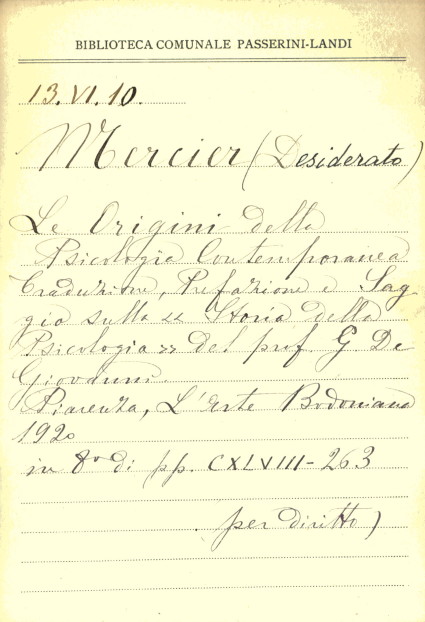 BIBLIOTECA COMUNALE PASSERINI-LANDI
13.VI.10.
Mercier (Desiderato)
Le Origini della
Psicologia Contemporanea
Traduzione, Prefazione e Sag
gio sulla << Storia della
Psicologia >> del prof G De
Giovanni.
Piacenza, L'Arte Bodoniana
1920
in 8º di pp. CXLVIII-263
per diritto)